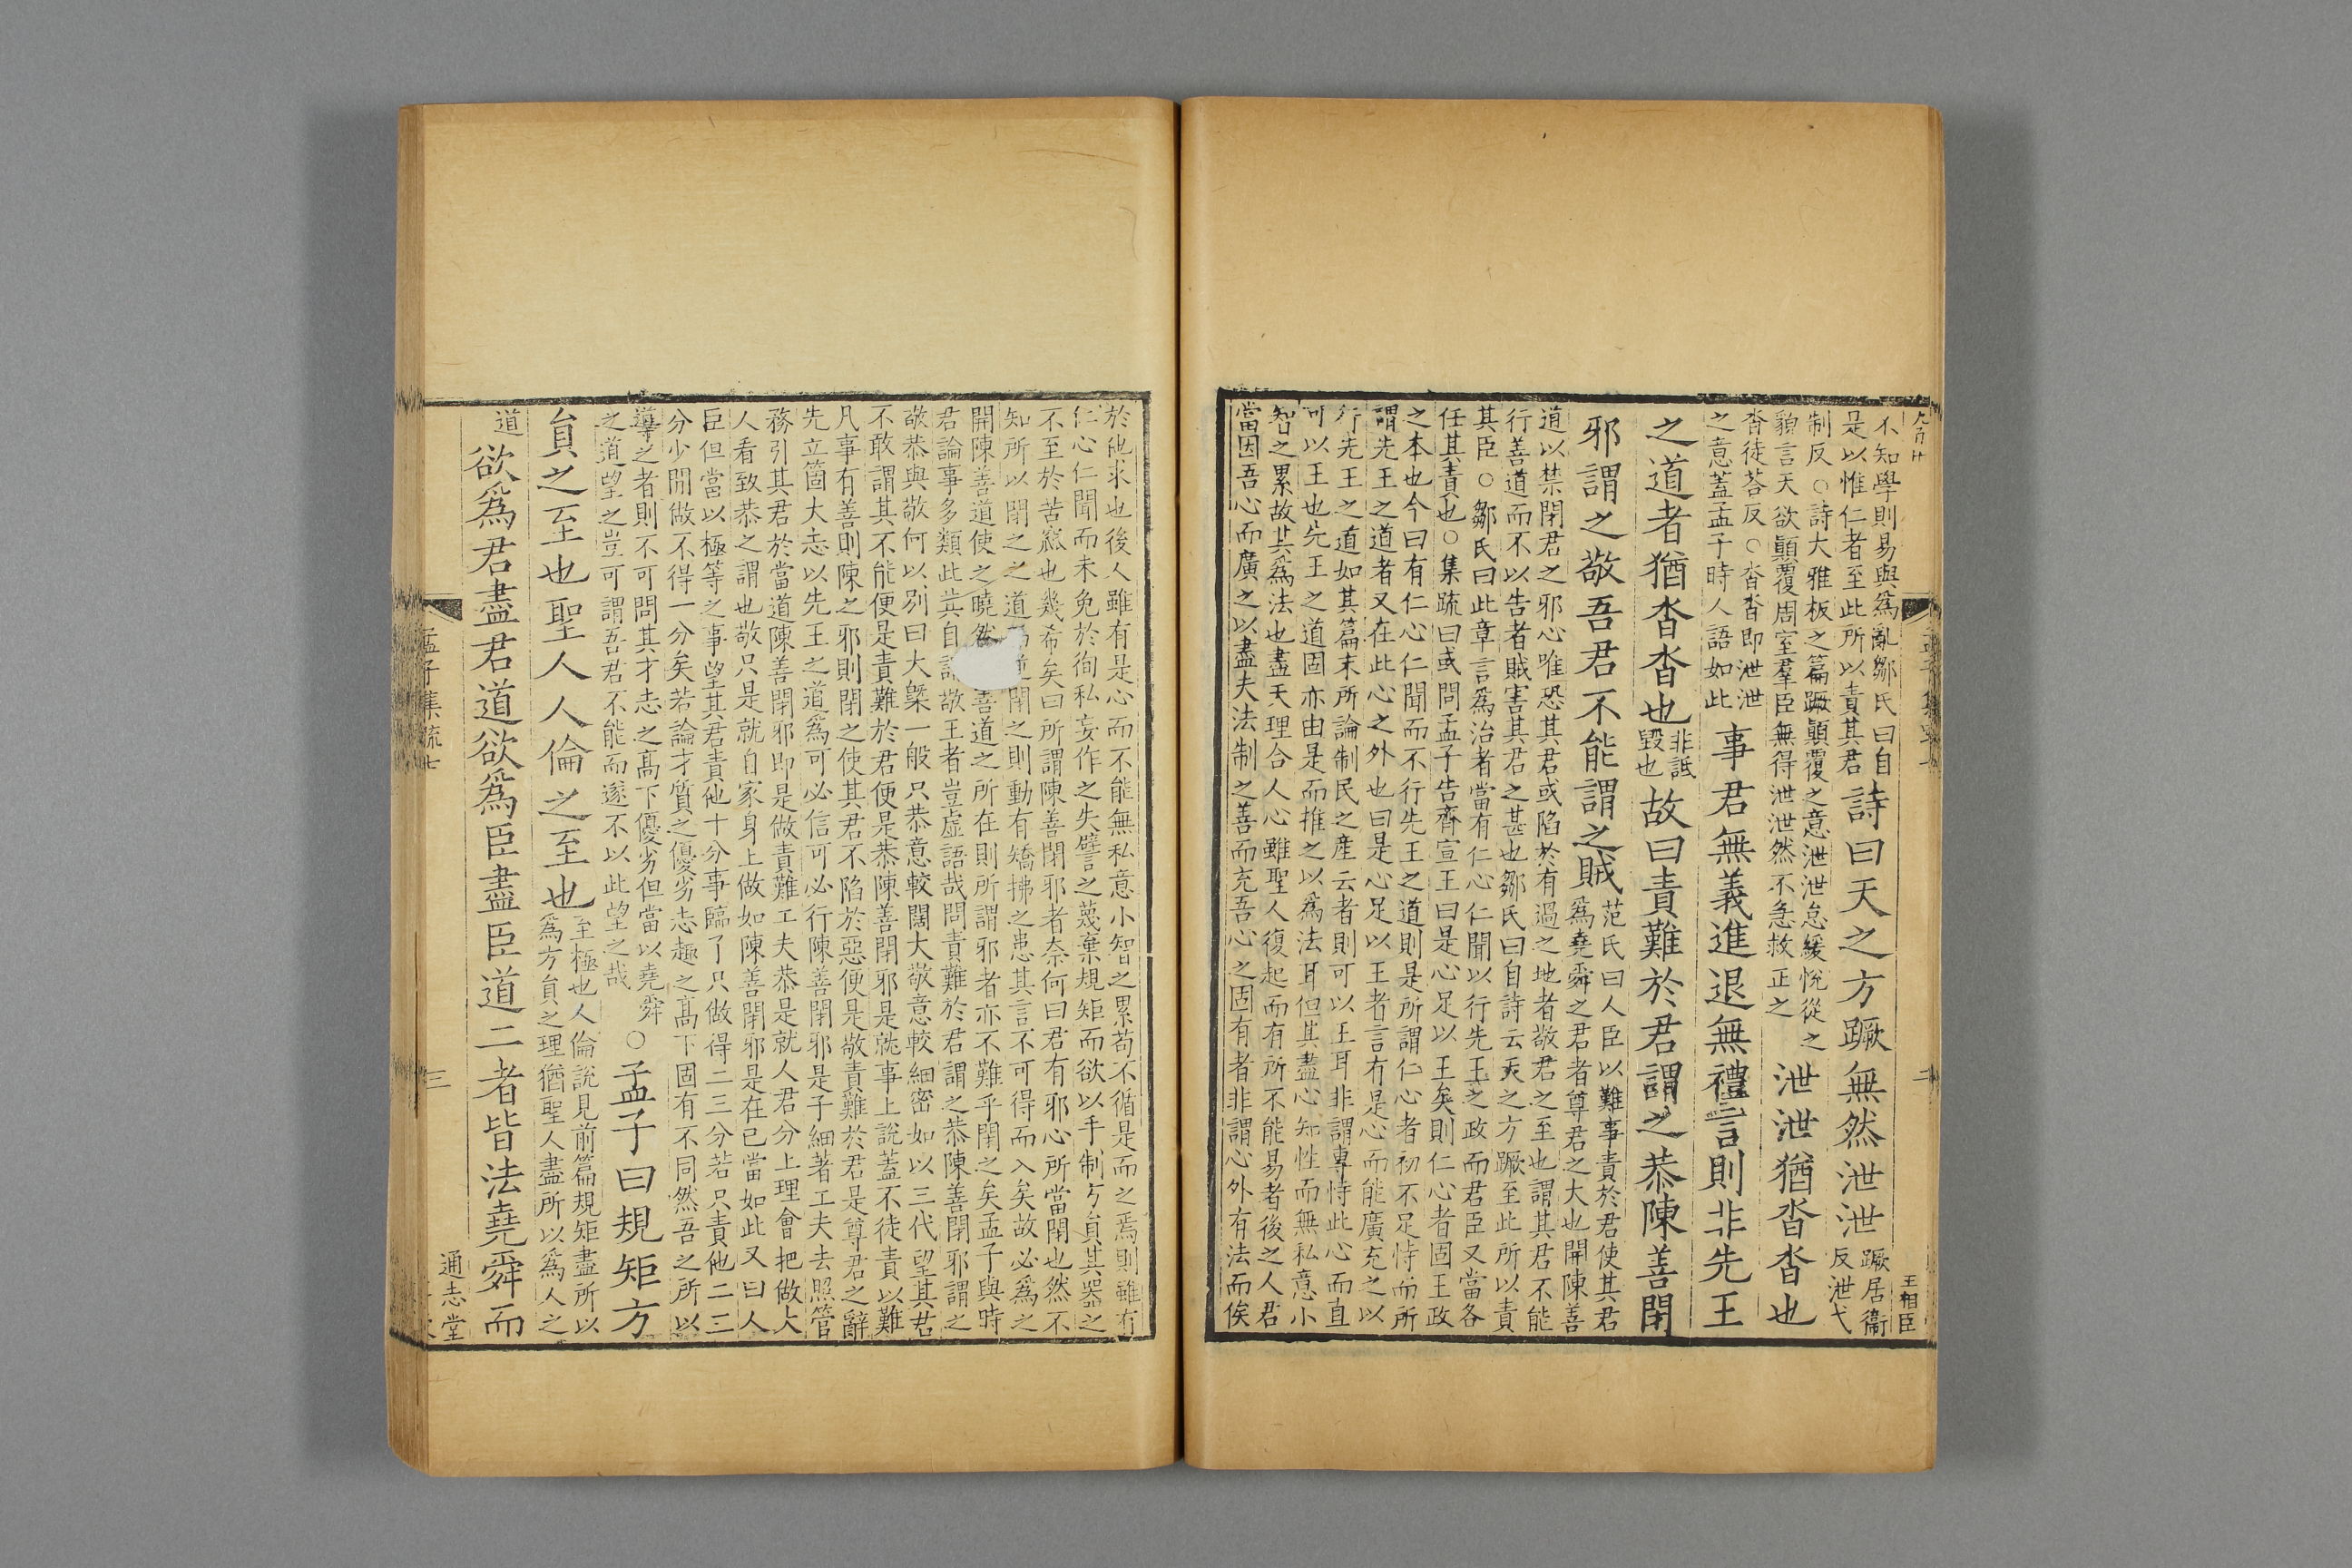 不知學則易與爲亂鄒氏曰自
是以惟仁者至此所以責其君
詩曰天之方蹶無然泄泄
蹶居衞
反泄弋
制反○詩大雅板之篇蹶顚覆之意泄泄怠緩悅從之
貌言天欲顚覆周室羣臣無得泄泄然不急救正之
泄泄猶沓沓也
沓徒荅反○沓沓即泄泄
之意蓋孟子時人語如此
事君無義進退無禮言則非先王
之道者猶沓沓也
非詆
毀也
故曰責難於君謂之恭陳善閉
邪謂之敬吾君不能謂之賊
范氏曰人臣以難事責於君使其君
爲堯舜之君者尊君之大也開陳善
道以禁閉君之邪心唯恐其君或陷於有過之地者敬君之至也謂其君不能
行善道而不以告者賊害其君之甚也鄒氏曰自詩云天之方蹶至此所以責
其臣○鄒氏曰此章言爲治者當有仁心仁聞以行先王之政而君臣又當各
任其責也○集疏曰或問孟子告齊宣王曰是心足以王矣則仁心者固王政
之本也今曰有仁心仁聞而不行先王之道則是所謂仁心者初不足恃而所
謂先王之道者又在此心之外也曰是心足以王者言有是心而能廣充之以
行先王之道如其篇末所論制民之産云者則可以王耳非謂專恃此心而直
可以王也先王之道固亦由是而推之以爲法耳但其盡心知性而無私意小
智之累故其爲法也盡天理合人心雖聖人復起而有所不能易者後之人君
當因吾心而廣之以盡夫法制之善而充吾心之固有者非謂心外有法而俟
王相臣
於他求也後人雖有是心而不能無私意小智之累苟不循是而之焉則雖有
仁心仁聞而未免於徇私妄作之失譬之蔑棄規矩而欲以手制方員其器之
不至於苦窳也幾希矣曰所謂陳善閉邪者奈何曰君有邪心所當閉也然不
知所以閉之之道而逆閉之則動有矯拂之患其言不可得而入矣故必爲之
開陳善道使之曉然善道之所在則所謂邪者亦不難乎閉之矣孟子與時
君論事多類此其自謂敬王者豈虛語哉問責難於君謂之恭陳善閉邪謂之
敬恭與敬何以别曰大槩一般只恭意較闊大敬意較細密如以三代望其君
不敢謂其不能便是責難於君便是恭陳善閉邪是就事上說蓋不徒責以難
凡事有善則陳之邪則閉之使其君不陷於惡便是敬責難於君是尊君之辭
先立箇大志以先王之道爲可必信可必行陳善閉邪是子細著工夫去照管
務引其君於當道陳善閉邪即是做責難工夫恭是就人君分上理會把做大
人看致恭之謂也敬只是就自家身上做如陳善閉邪是在己當如此又曰人
臣但當以極等之事望其君責他十分事臨了只做得二三分若只責他二三
分少閒做不得一分矣若論才質之優劣志趣之高下固有不同然吾之所以
導之者則不可問其才志之高下優劣但當以堯舜
之道望之豈可謂吾君不能而遂不以此望之哉
○孟子曰規矩方
員之至也聖人人倫之至也
至極也人倫說見前篇規矩盡所以
爲方員之理猶聖人盡所以爲人之
道
欲爲君盡君道欲爲臣盡臣道二者皆法堯舜而
孟子集疏七
三
通志堂